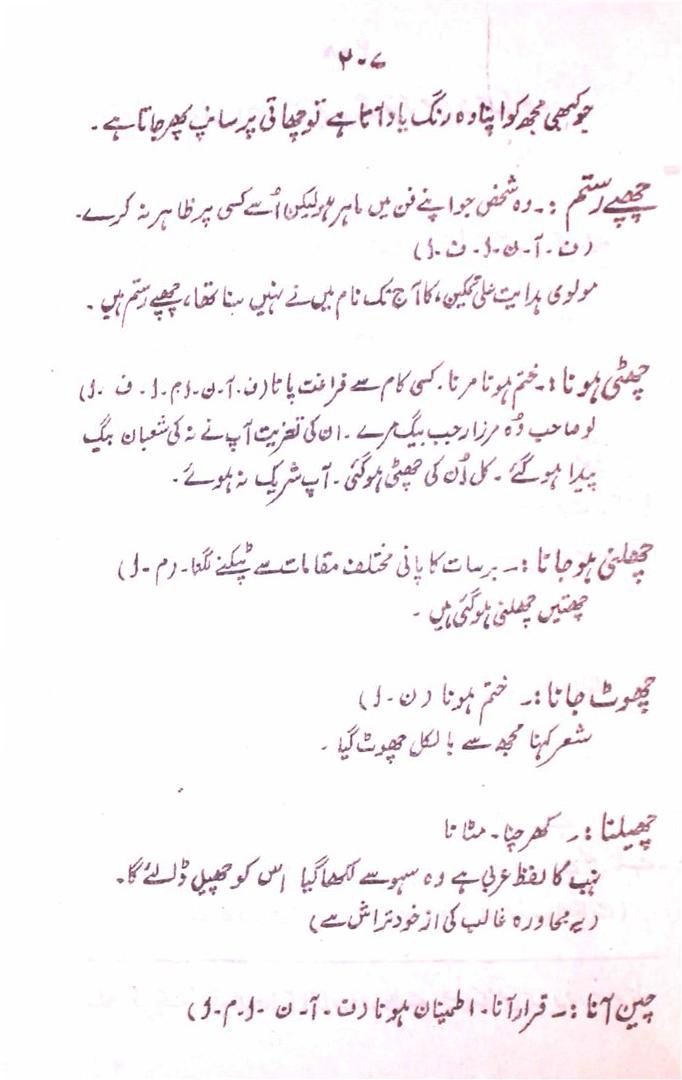 ۲۰۷
جو کبھی مجھ کو اپنا وہ رنگ یاد آتا ہے تو چھاتی پر سانپ پھر جاتا ہے۔
چھپے رستم :۔ وہ شخص جو اپنے فن میں ماہر ہو لیکن اُسے کسی پر ظاہر نہ کرے۔
(ف۔آ۔ن۔ا۔ف۔ا)
مولوی ہدایت علی تمکین، کا آج تک نام میں نے نہیں سنا تھا، چھپے رستم ہیں۔
چھٹی ہونا :۔ ختم ہونا مرنا۔ کسی کام سے فراغت پانا (ف۔آ۔ن۔ا۔م۔ا۔ف۔ا)
لو صاحب وُہ مرزا رجب بیگ مرے۔ ان کی تعزیت آپ نے نہ کی شعبان بیگ
پیدا ہو گئے۔ کل اُن کی چھٹی ہو گئی۔ آپ شریک نہ ہوئے۔
چھلنی ہو جانا :۔ برسات کا پانی مختلف مقامات سے ٹپکنے لگنا۔ (م۔ا)
چھتیں چھلنی ہو گئی ہیں۔
چھوٹ جانا :۔ ختم ہونا (ن۔ا)
شعر کہنا مجھ سے بالکل چھوٹ گیا۔
چھیلنا :۔ کھرچنا۔ مٹانا
نہیب کا لفظ عربی ہے وہ سہو سے لکھا گیا اس کو چھیل ڈالئے گا۔
(یہ محاورہ غالب کی از خود تراش سے)
چین آنا :۔ قرار آنا۔ اطمینان ہونا (ف۔آ۔ن۔ا۔م۔ا)